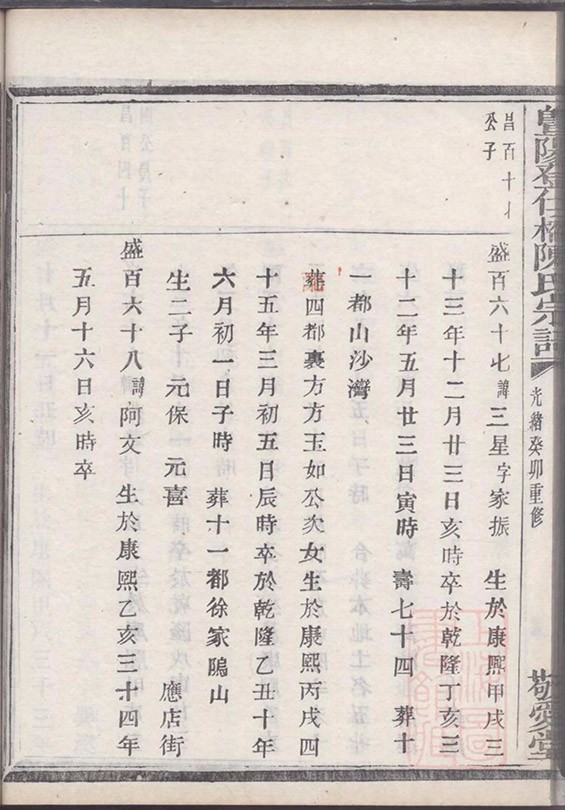 暨陽
陳氏宗譜
光緒癸卯重修
敬愛堂
昌百十
公子
盛百六十七諱三星字家振 生於康熙甲戌三
十三年十二月廿三日亥時卒於乾隆丁亥三
十二年五月廿三日寅時 壽七十四 葬十
一都山沙灣
四都裏方方玉如公次女生於康熙丙戌四
十五年三月初五日辰時卒於乾隆乙丑十年
六月初一日子時 葬十一都徐家隖山
生二子 元保 元喜 應店街
盛百六十八諱阿文 生於康熙乙亥三十四年
五月十六日亥時卒